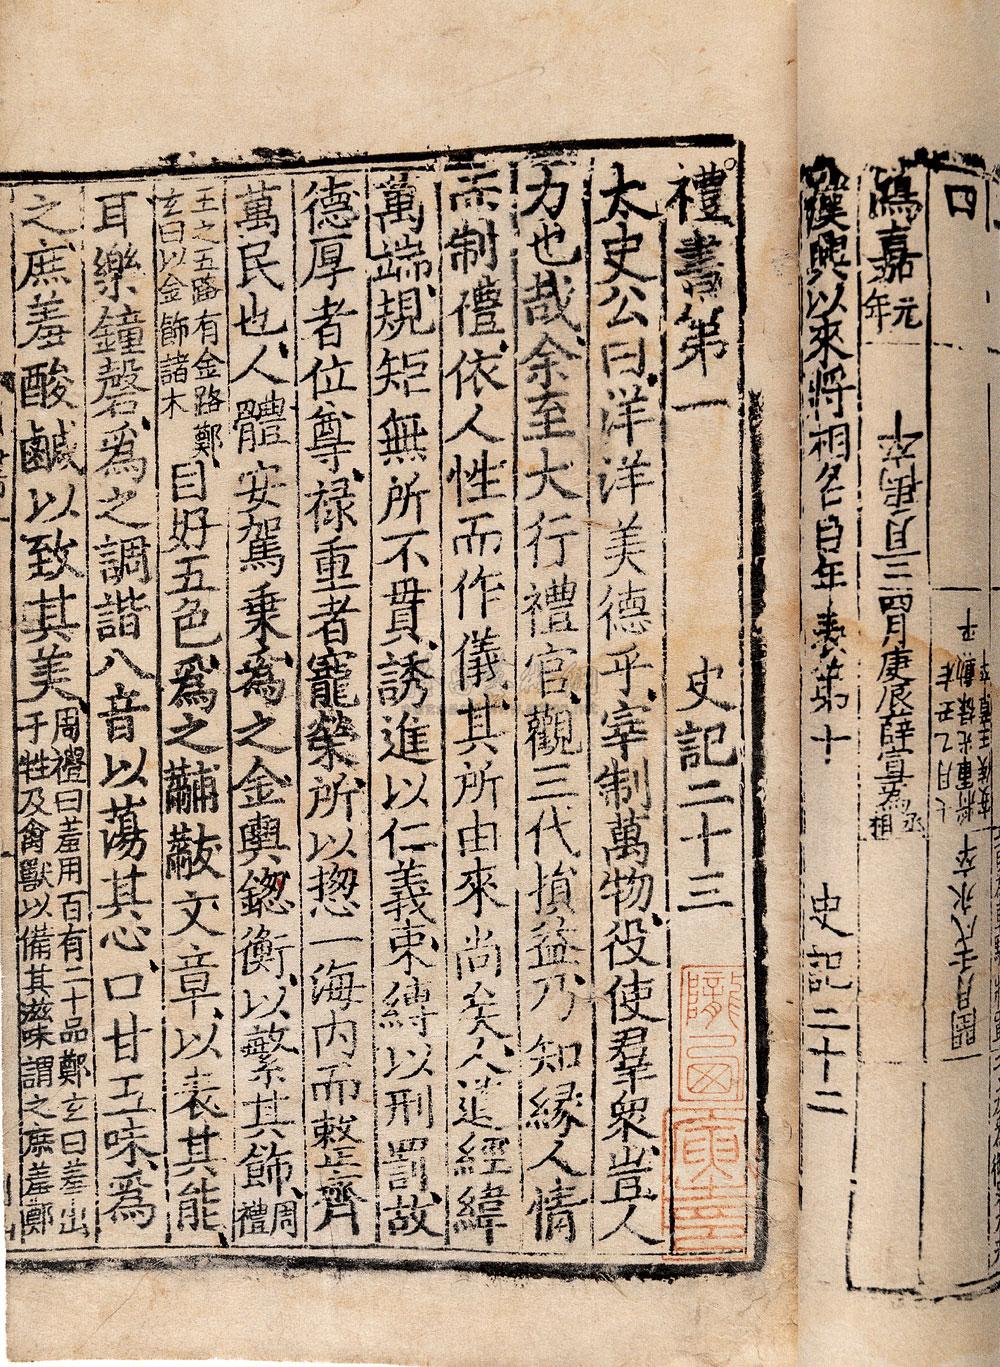 四
鴻嘉元年
三四月庚辰薛宣為丞相
漢興以來將相名臣年表第十
史記二十二
禮書第一
史記二十三
太史公曰洋洋美德乎宰制萬物役使羣衆豈人
力也哉余至大行禮官觀三代損益乃知緣人情
而制禮依人性而作儀其所由來尚矣人道經緯
萬端規矩無所不貫誘進以仁義束縛以刑罰故
德厚者位尊祿重者寵榮所以揔一海内而整齊
萬民也人體安駕乗為之金輿鍯衡以繁其飾周禮
王之五路有金路鄭
玄曰以金飾諸木
目好五色為之黼黻文章以表其能
耳樂鐘磬為之調諧八音以蕩其心口甘五味為
之庶羞酸鹹以致其美
周禮曰羞用百有二十品鄭玄曰羞出
于牲及禽獸以備其滋味謂之庶羞鄭